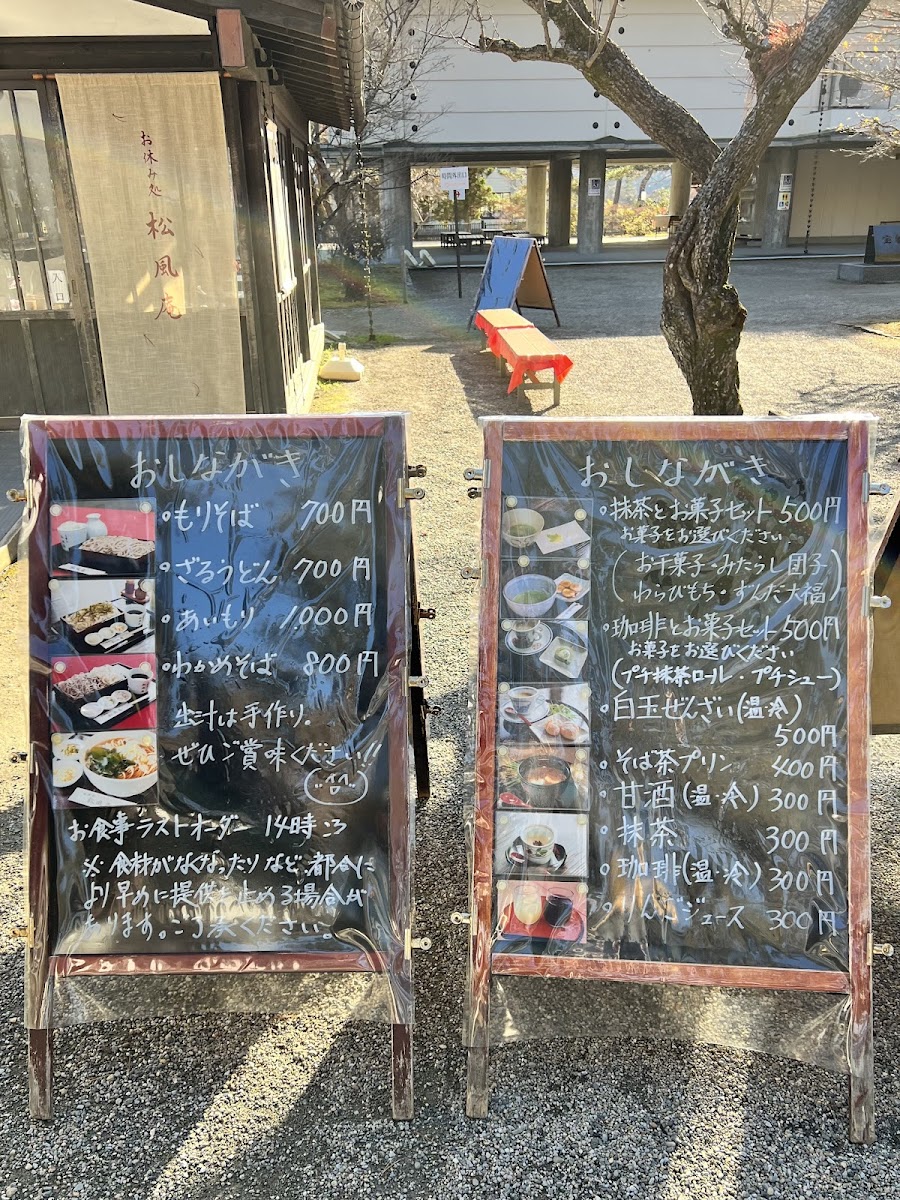 お休み処
松風庵
入口
おしながき
・もりそば 700円
・ざるうどん 700円
・あいもり 1,000円
・わかめそば 800円
出汁は手作り。
ぜひご賞味ください!!
お食事ラストオーダー 14時ころ
※食材がなくなったりなど、都合に
より早めに提供を止める場合が
あります。ご了承ください。
おしながき
・抹茶とお菓子セット 500円
お菓子をお選びください
(お干菓子・みたらし団子
わらびもち・ずんだ大福)
・珈琲とお菓子セット 500円
お菓子をお選びください
(プチ抹茶ロール・プチシュー)
・白玉ぜんざい(温・冷)
500円
・そば茶プリン 400円
・甘酒(温・冷) 300円
・抹茶 300円
・珈琲(温・冷) 300円
・りんごジュース 300円